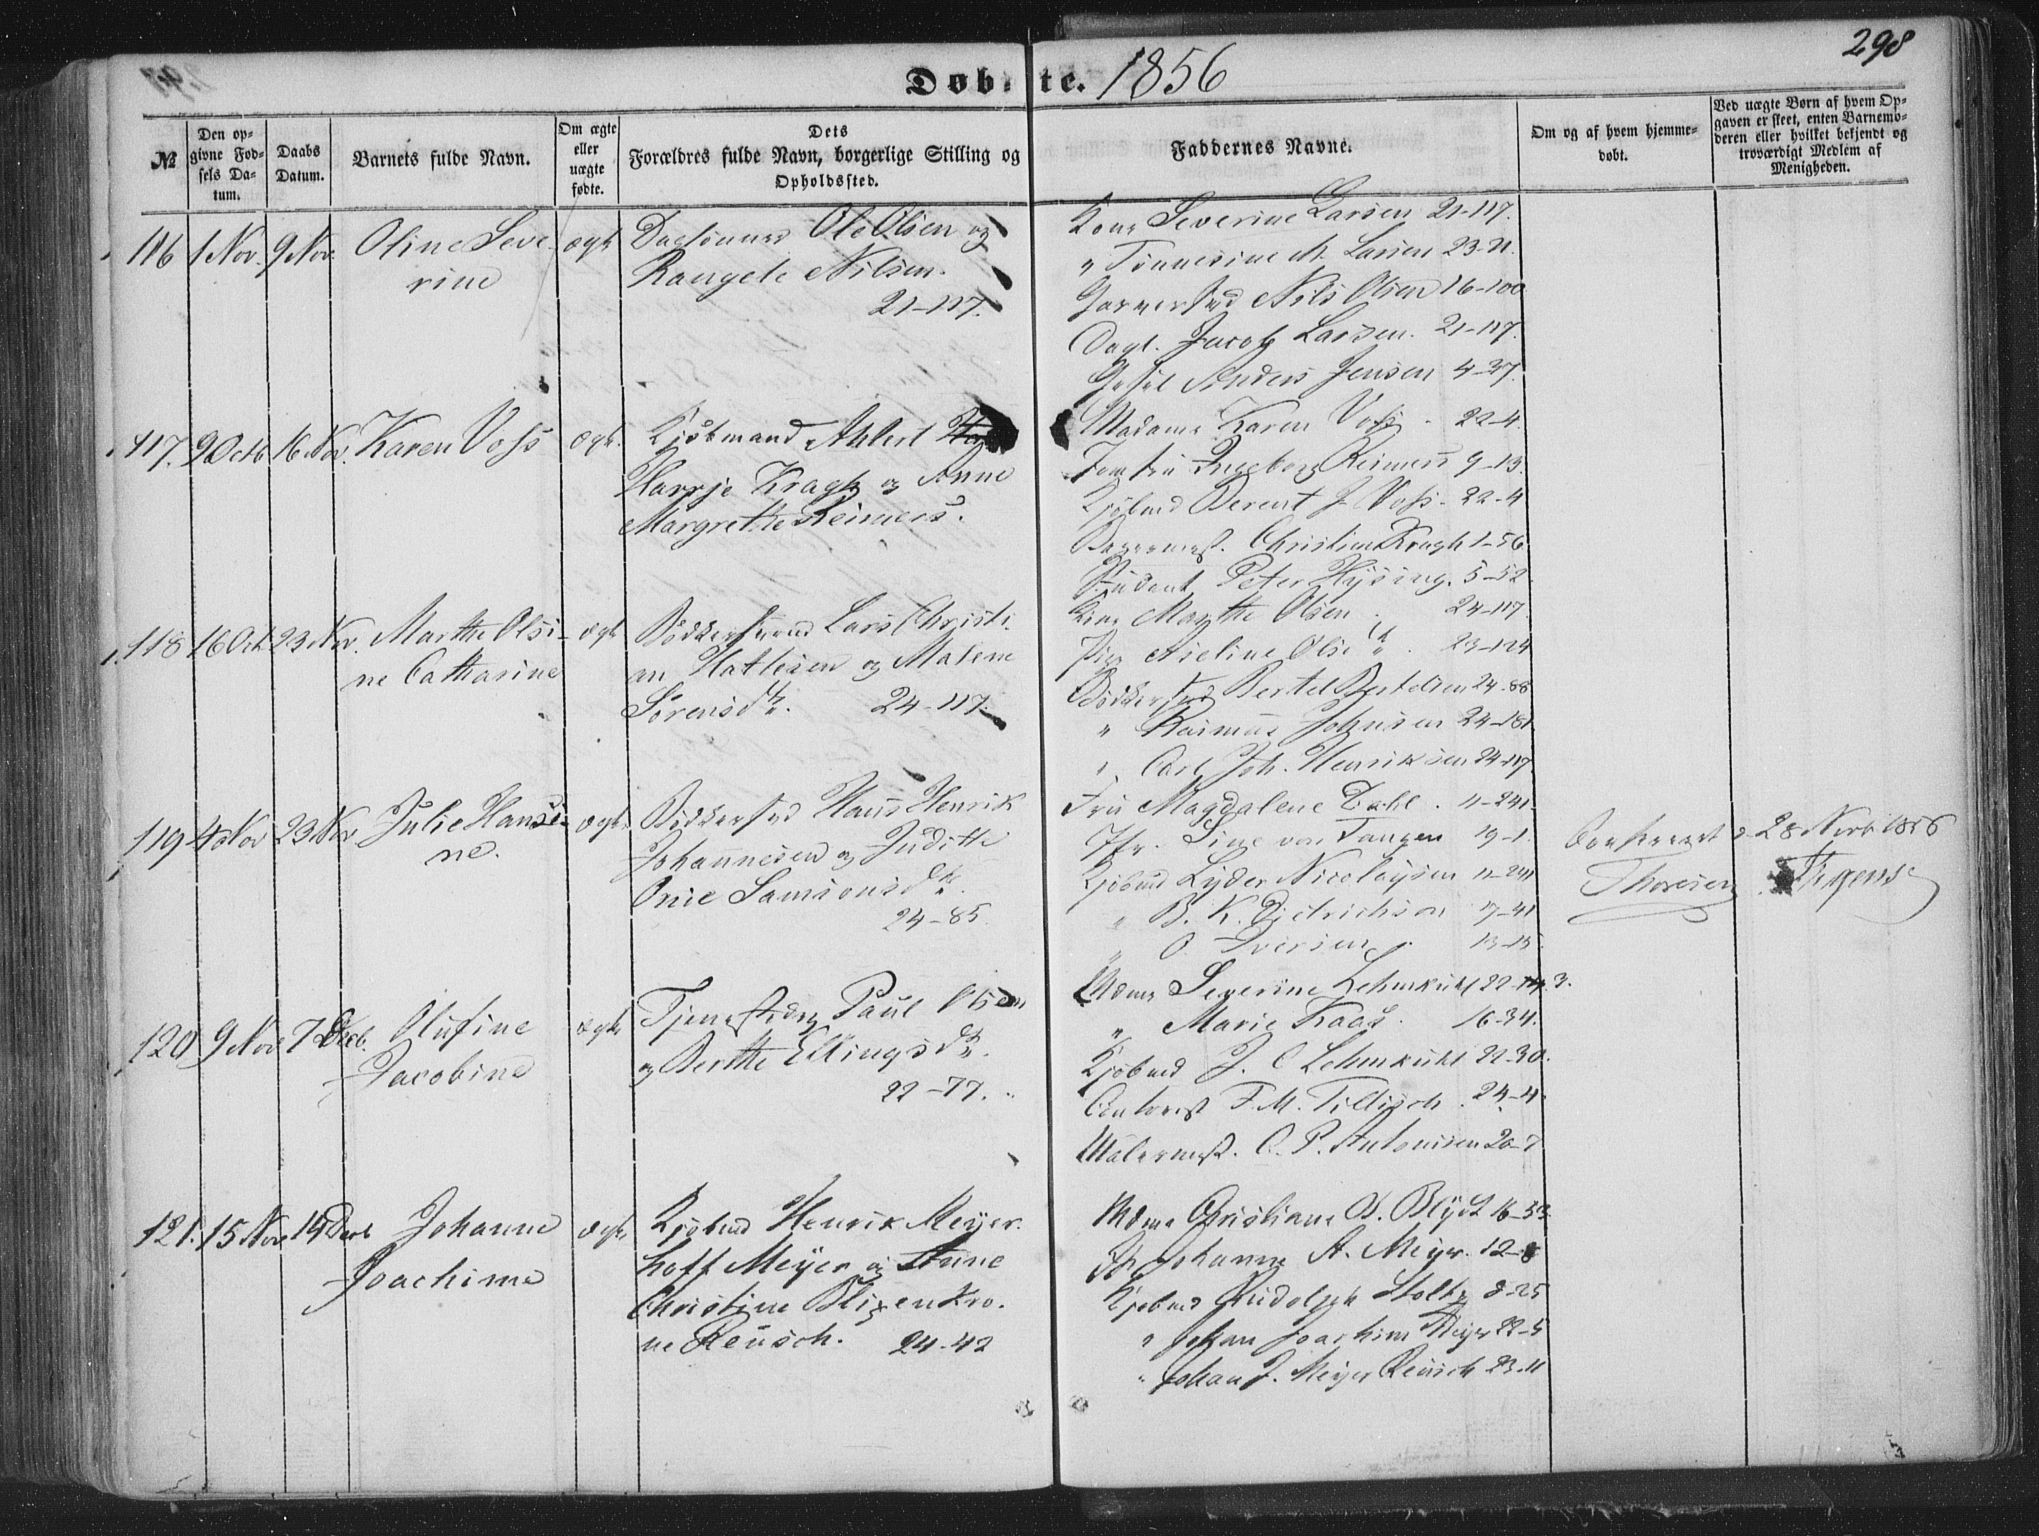 298
Døbte. 1856
№
Den opgivne Fødsels Datum.
Daabs Datum.
Barnets fulde Navn.
Om ægte eller uægte fødte.
Dets Forældres fulde Navn, borgerlige Stilling og Opholdssted.
Faddernes Navne.
Om og af hvem hjemmedøbt.
Ved uægte Børn af hvem Opgaven er skeet, enten Barnemoderen eller hvilket bekjendt og troværdigt Medlem af Menigheden.
116 1 Nov. 9 Nov. Oline Seve-
rine
ægte
Ole Olsen og
Nilsen.
21-117.
Kone Severine Larsen 21-117.
" Tønnesine M. Larsen 23-21.
Nils Olsen 16-100
Dagl. Jacob Larsen. 21-117.
Anders Jensen 4-27.
117. 9 Octb 16 Nov. Karen Voss
ægte.
Kjøbmand Ahlert
Harrje Kragh og Anne
Margrethe Reimers.
Madame Karen Voss. 22-4.
Jomfru Ingeborg Reimers 9-13.
Kjøbmd Berent J. Voss. 22-4
Bagermest. Christian Kragh 1-56
Student Peter Hysing. 5-52.
118 16 Oct. 23 Nov. Marthe Olsi-
ne Catharine
ægte
Bødkersvend Lars Christi-
an Hatlesen og Malene
Sørensdtr. 24-117.
Kone Marthe Olsen. 24-117.
Pige Aseline Olsdtr. 23-124
Bødkersvd Bertel Bertelsen 24-88
" Rasmus Johnsen 24-181
" Carl Joh. Henriksen 24-117
119 4 Nov 23 Nov Julie Hansi-
ne.
ægte
Bødkersvd Hans Henrik
Johannesen og Judithe
Samsonsdtr.
24-85.
Fru Magdalene Dahl. 11-241
Jfr. Line von Tangen 19-1.
Kjøbmd Lyder Nicolaysen 11-241
" B. K. Dietrichson 17-41
" O. Iversen. 13-15.
28 Novb 1856
Thoresen
120 9 Nov 7 Decb. Olufine
Jacobine
ægte
Paul Olsen
og Berthe Ellingsdtr.
22-77.
Mdme Severine Lehmkuhl 22-
" Marie Kaas. 16-34.
Kjøbmd J. C Lehmkuhl 22-30.
Contorist F. M. Tillisch. 24-4.
Malermest. C. P. Antonisen 20-7
121. 15 Nov 14 Decb Johanne
Joachime
ægte
Kjøbmd Henrik Meyer-
hoff Meyer og Anne
Christine Blixenkro-
ne Reusch. 24-42
Mdme Christiane D. Blydt 16-53
Jfr Johanne A. Meyer. 12-8
Kjøbmd Rudolph Stoltz 8-25
" Johan Joachim Meyer 22-5
" Johan J. Meyer Reusch 23-11